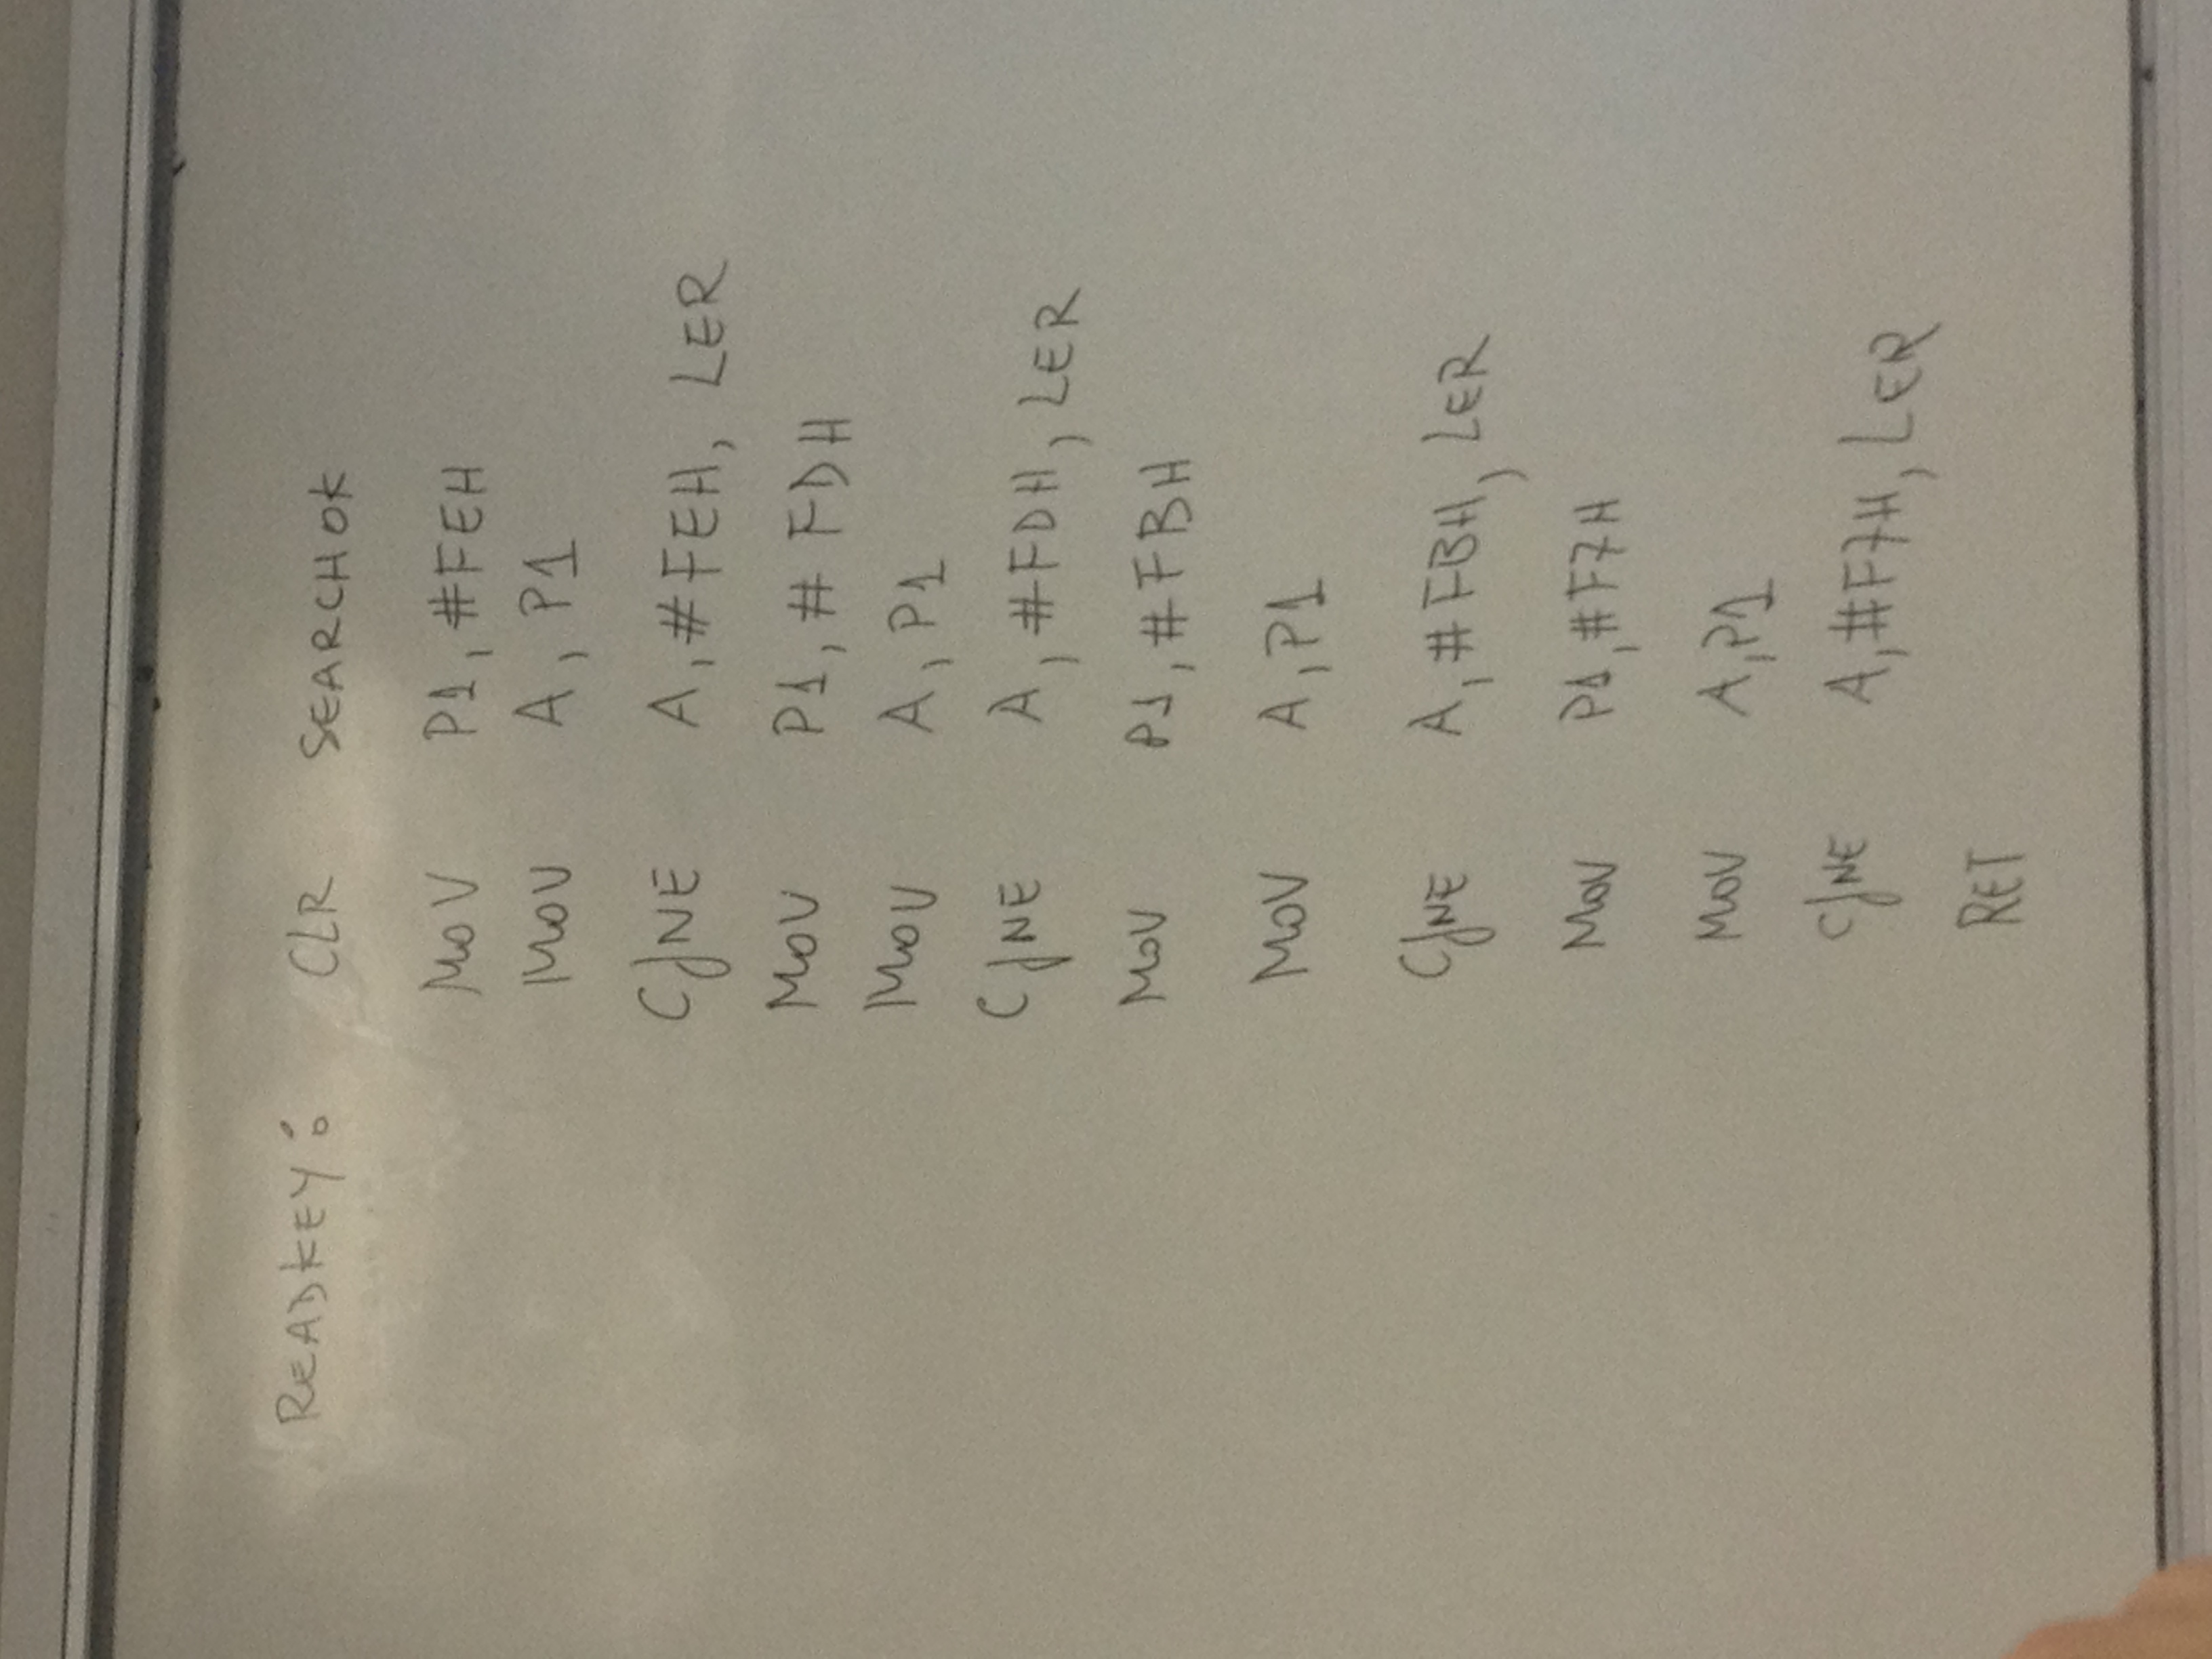 READKEY: CLR SEARCHOK
MOV P1, #FEH
MOV A, P1
CJNE A, #FEH, LER
MOV P1, # FDH
MOV A, P1
CJNE A, #FDH, LER
MOV P1, #FBH
MOV A, P1
CJNE A, #FBH, LER
MOV P1, #F7H
MOV A, P1
CJNE A, #F7H, LER
RET